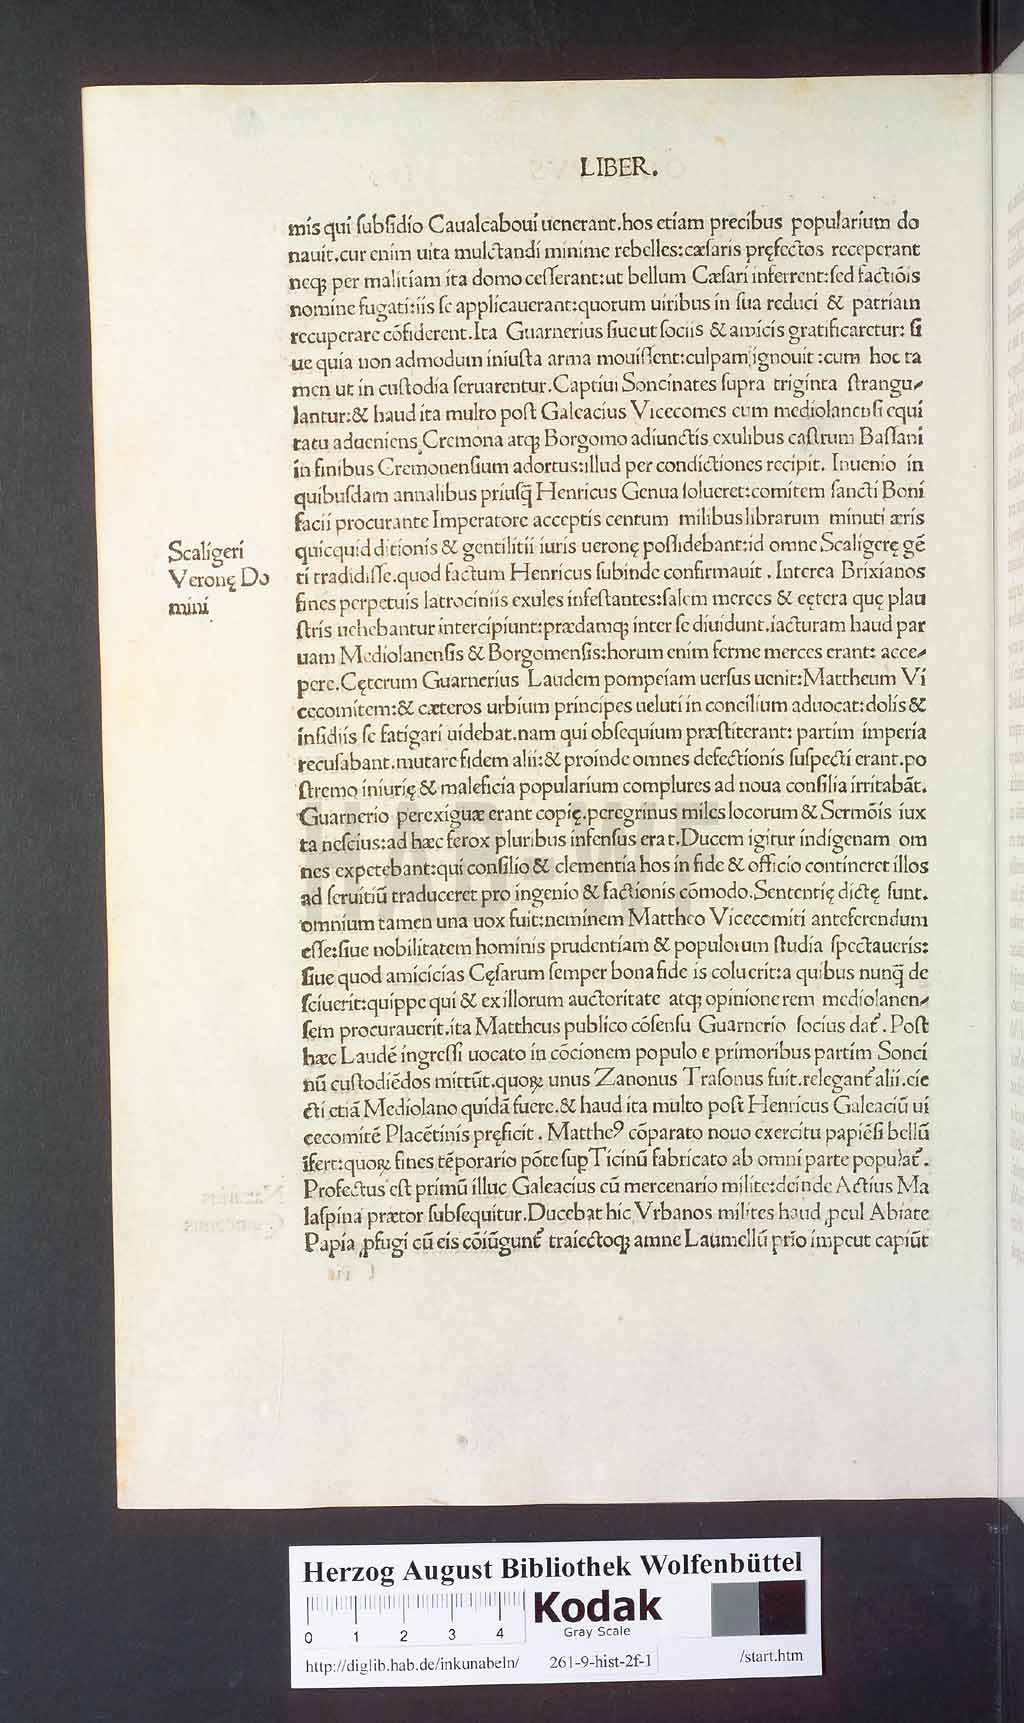 LIBER.
mis qui ſubſidio Caualcaboui uenerant.hos etiam precibus popularium do
nauit.cur enim uita mulctandi minime rebelles:cæſaris pręfectos receperant
neqꝫ per malitiam ita domo ceſſerant:ut bellum Cæſari inferrent:ſed factiōis
nomine fugati:iis ſe applicauerant:quorum uiribus in ſua reduci & patriam
recuperare cōfiderent.Ita Guarnerius ſiue ut ſociis & amicis gratificaretur: ſi
ue quia non admodum iniuſta arma mouiſſent:culpam ignouit :cum hoc ta
men ut in cuſtodia ſeruarentur.Captiui Soncinates ſupra triginta ſtrangu-
lantur:& haud ita multo poſt Galeacius Vicecomes cum mediolanenſi equi
tatu adueniens Cremona atqꝫ Borgomo adiunctis exulibus caſtrum Baſſani
in finibus Cremonenſium adortus:illud per condictiones recipit. Inuenio in
quibuſdam annalibus priuſq̄ Henricus Genua ſolueret:comitem ſancti Boni
facii procurante Imperatore acceptis centum milibus librarum minuti æris
quicquid ditionis & gentilitii iuris ueronę poſſidebant:id omne Scaligerę gē
ti tradidiſſe.quod factum Henricus ſubinde confirmauit . Interea Brixianos
fines perpetuis latrociniis exules infeſtantes:ſalem merces & cętera quę plau
ſtris uehebantur intercipiunt:prædamqꝫ inter ſe diuidunt.iacturam haud par
uam Mediolanenſis & Borgomenſis:horum enim ferme merces erant: acce-
pere.Cęterum Guarnerius Laudem pompeiam uerſus uenit:Mattheum Vi
cecomitem:& cæteros urbium principes ueluti in concilium aduocat:dolis &
inſidiis ſe fatigari uidebat.nam qui obſequium præſtiterant: partim imperia
recuſabant.mutare fidem alii:& proinde omnes defectionis ſuſpecti erant.po
ſtremo iniurię & maleficia popularium complures ad noua conſilia irritabāt.
Guarnerio perexiguæ erant copię.peregrinus miles locorum & Sermōis iux
ta neſcius:ad hæc ferox pluribus infenſus erat.Ducem igitur indigenam om
nes expetebant:qui conſilio & clementia hos in fide & officio contineret illos
ad ſeruitiū traduceret pro ingenio & factionis cōmodo.Sententię dictę ſunt.
omnium tamen una uox fuit:neminem Mattheo Vicecomiti anteferendum
eſſe:ſiue nobilitatem hominis prudentiam & populorum ſtudia ſpectaueris:
ſiue quod amicicias Cęſarum ſemper bona fide is coluerit:a quibus nunq̄ de
ſciuerit:quippe qui & ex illorum auctoritate atqꝫ opinione rem mediolanen-
ſem procurauerit.ita Mattheus publico cōſenſu Guarnerio ſocius dat᷑. Poſt
hæc Laudē ingreſſi uocato in cōcionem populo e primoribus partim Sonci
nū cuſtodiēdos mittūt.quoꝝ unus Zanonus Traſonus fuit.relegant᷑ alii.eie
cti etiā Mediolano quidā fuere.& haud ita multo poſt Henricus Galeaciū ui
cecomitē Placētinis pręficit . Mattheꝰ cōparato nouo exercitu papiēſi bellū
īfert:quoꝝ fines tēporario pōte ſuꝑ Ticinū fabricato ab omni parte populat᷑.
Profectus eſt primū illuc Galeacius cū mercenario milite:deinde Actius Ma
laſpina prætor ſubſequitur.Ducebat hic Vrbanos milites haud ꝓcul Abiate
Papia ꝓfugi cū eis cōiūgunt᷑ traiectoqꝫ amne Laumellū prīo impetu capiūt
Scaligeri
Veronę Do
mini
Herzog August Bibliothek Wolfenbüttel
Kodak
Gray Scale
0 1 2 3 4
http://diglib.hab.de/inkunabeln/ 261-9-hist-2f-1 /start.htm